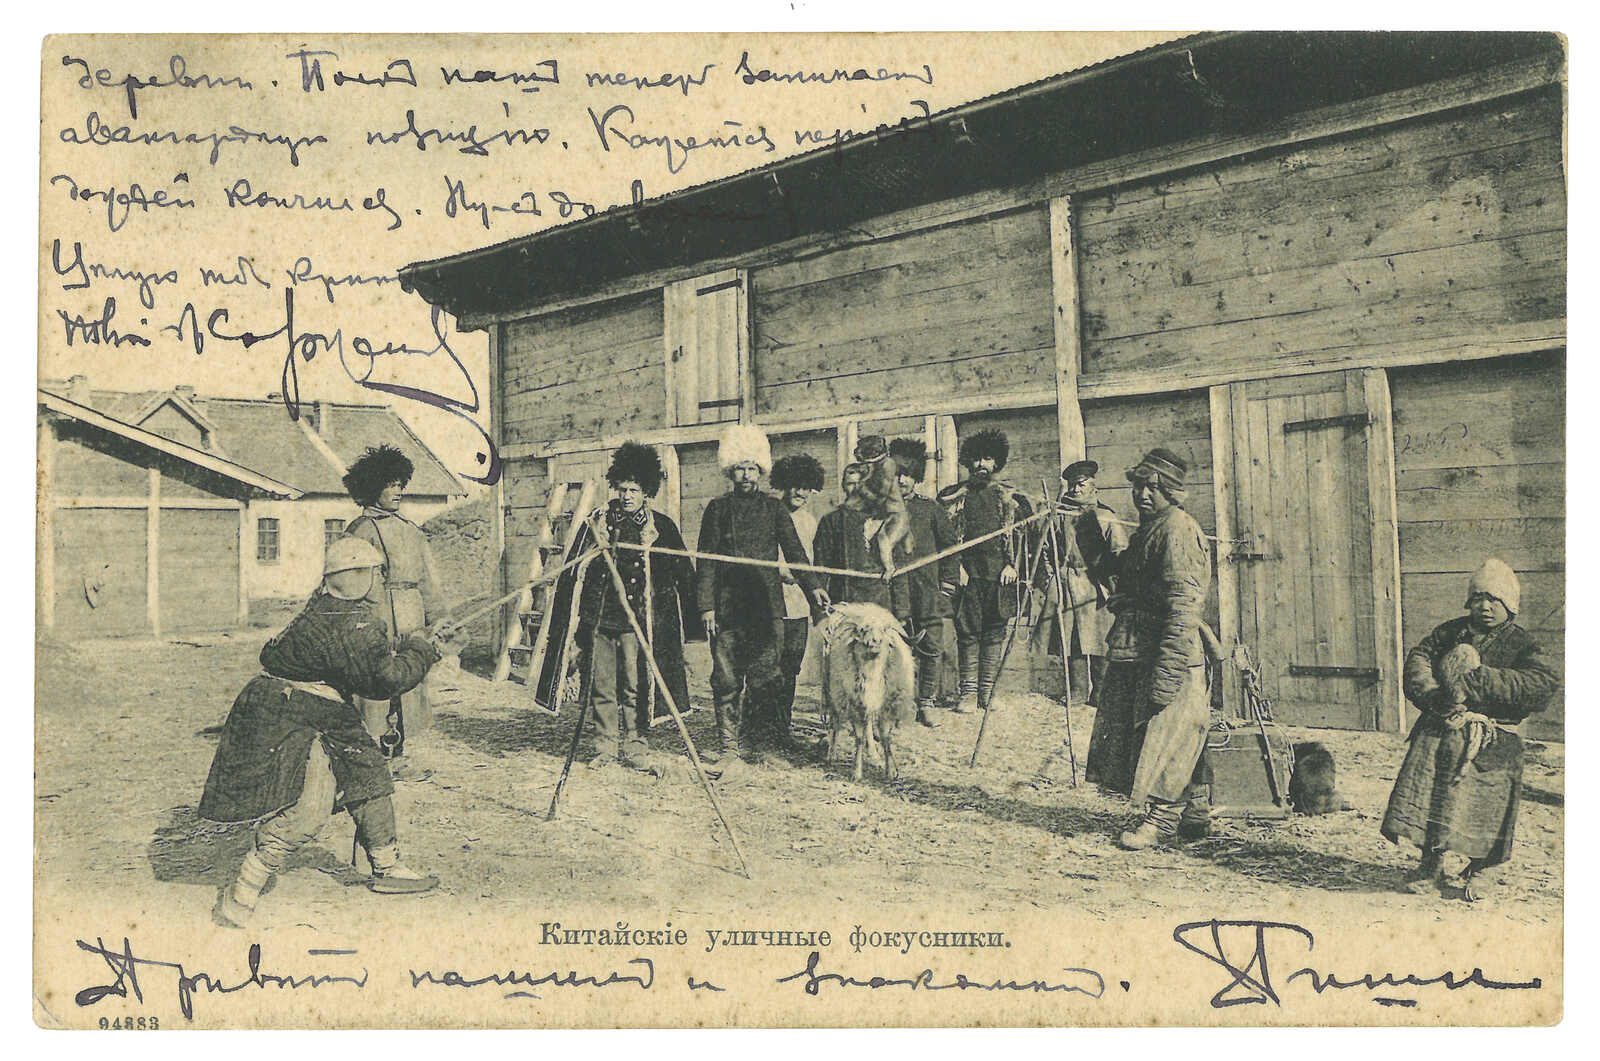 деревни. Полкъ нашъ теперь занимаетъ
авангардную позицію. Кажется періодъ
дождей кончился. Ну-съ до свиданія
Цѣлую тебя крѣпко
твой
Китайскіе уличные фокусники.
Привѣтъ нашимъ и знакомымъ. Пиши.
94883